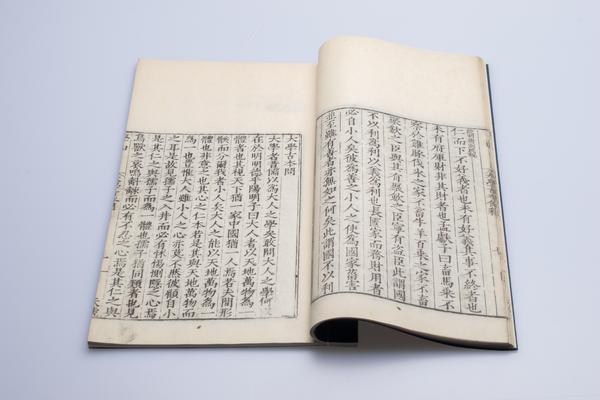 仁而下不好義者也未有好義其事不終者也
未有府庫財非其財者也孟獻子曰畜馬乘不
察於雞豚伐冰之家不畜牛羊百乘之家不畜
聚斂之臣與其有聚斂之臣寧有盜臣此謂國
不以利為利以義為利也長國家而務財用者
必自小人矣彼為善之小人之使為國家菑害
並至雖有善者亦無如之何矣此謂國不以利
大學古本問
大學者昔儒以為大人之學矣敢問大人之學何
在於明明德乎陽明子曰大人者以天地萬物為一
體者也其視天下猶一家中國猶一人焉若夫間形
骸而分爾我者小人矣大人之能以天地萬物為一
體也非意之也其心之仁本若是其與天地萬物而
為一也豈惟大人雖小人之心亦莫不然彼顧自小
之耳是故見孺子之入井而必有怵惕惻隱之心焉
是其仁之與孺子而為一體也孺子猶同類者也見
鳥獸之哀鳴觳觫而必有不忍之心焉是其仁之與